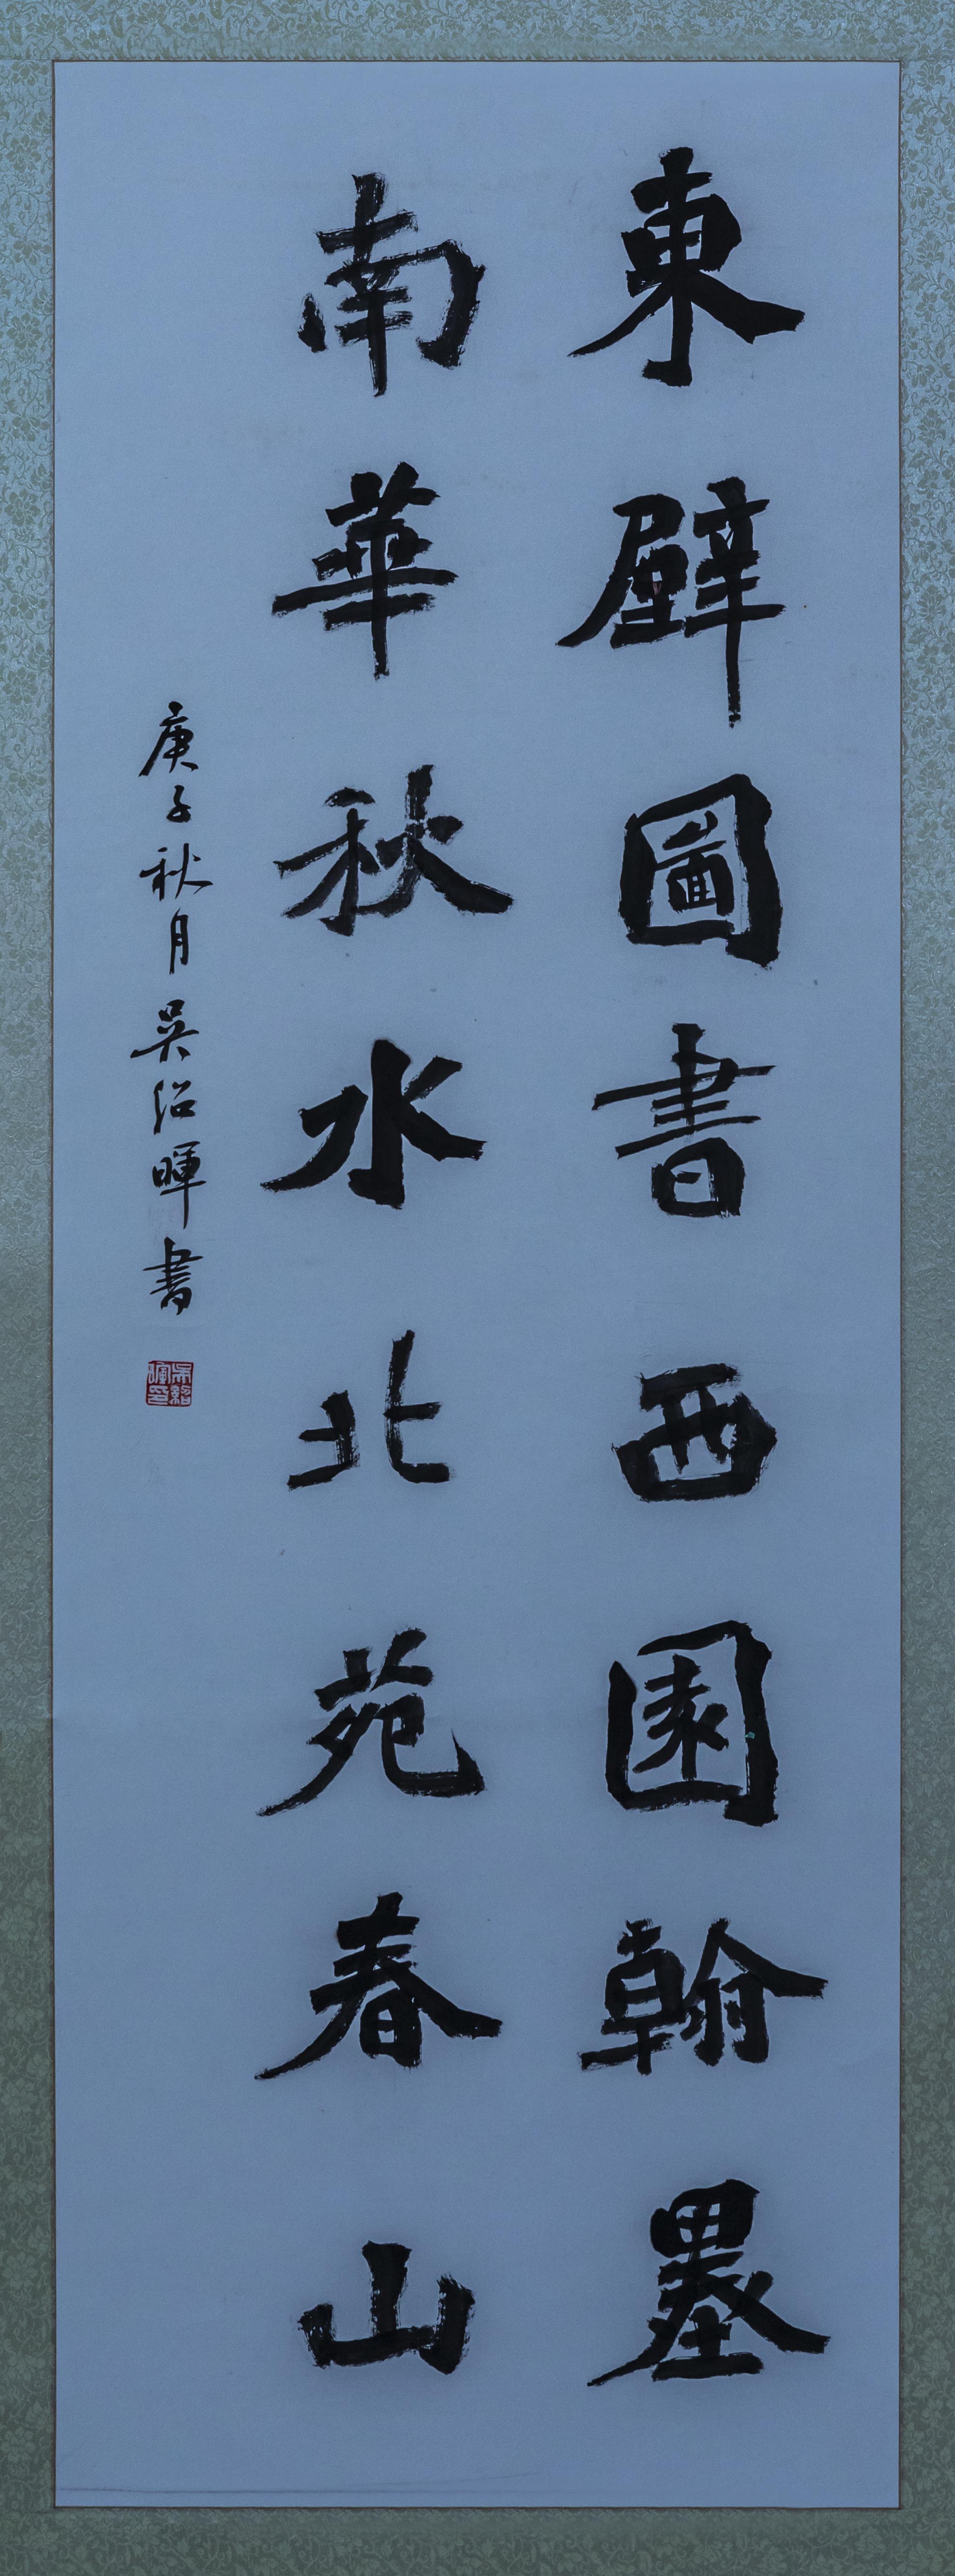 東壁圖書西園翰墨
南華秋水北苑春山
庚子秋月吳紹暉書
吳紹暉印